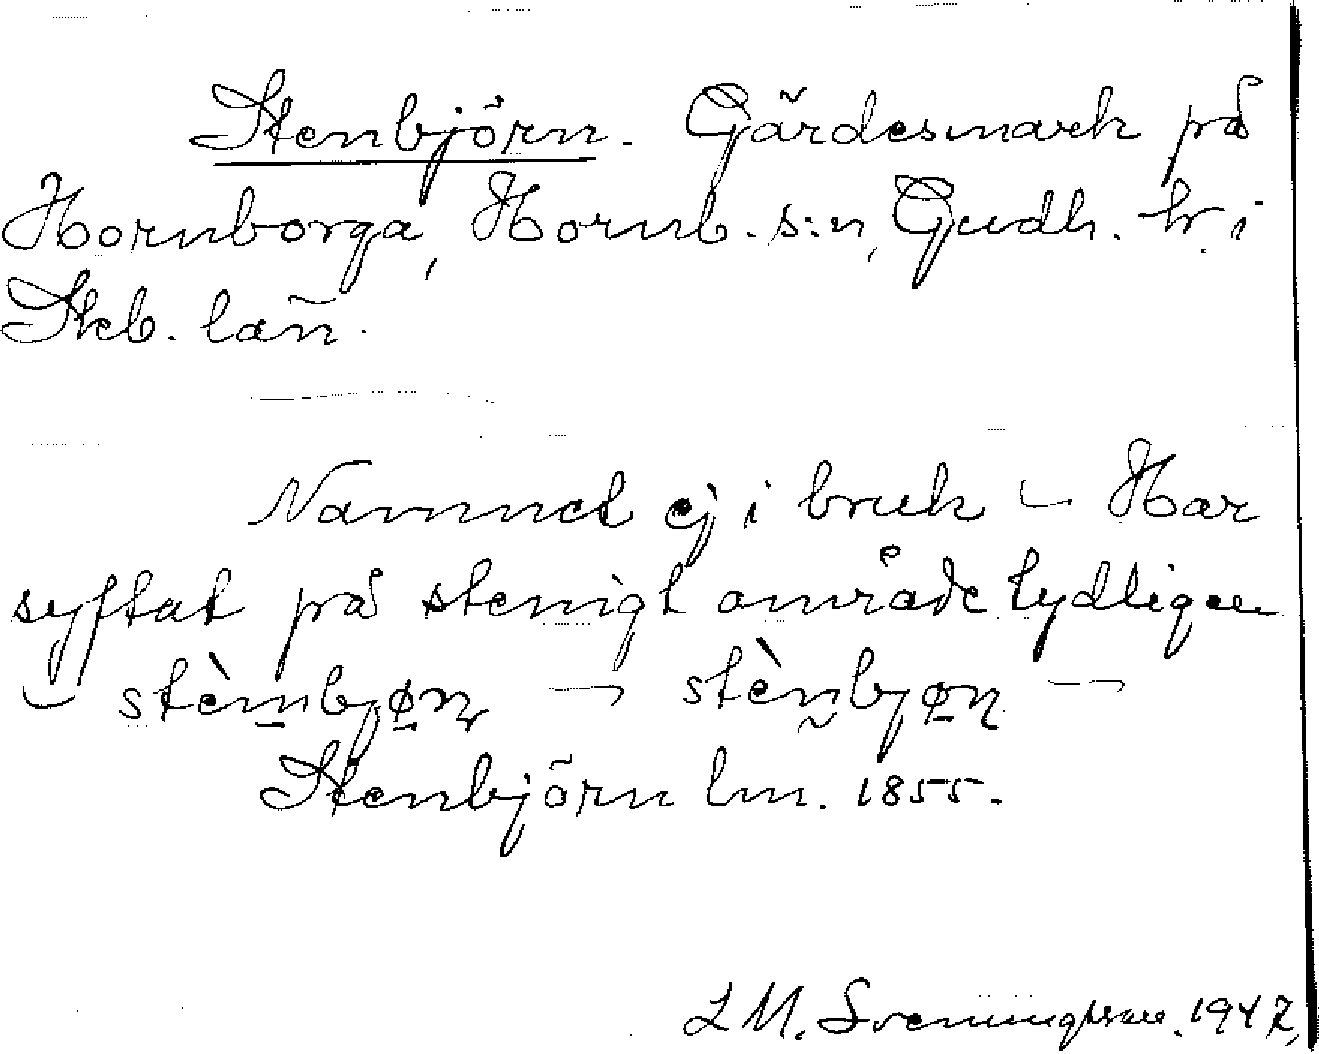 Stenbjörn. Gärdesmark på
Hornborga, Hornb. s:n, Gudh. hr. i
Skb. län.
Namnet ej i bruk – Har
syftat på stenigt område tydligen
– stèmbjøn – stènbjøn –
Stenbjörn lm. 1855.
L M. Svenungsson. 1947,